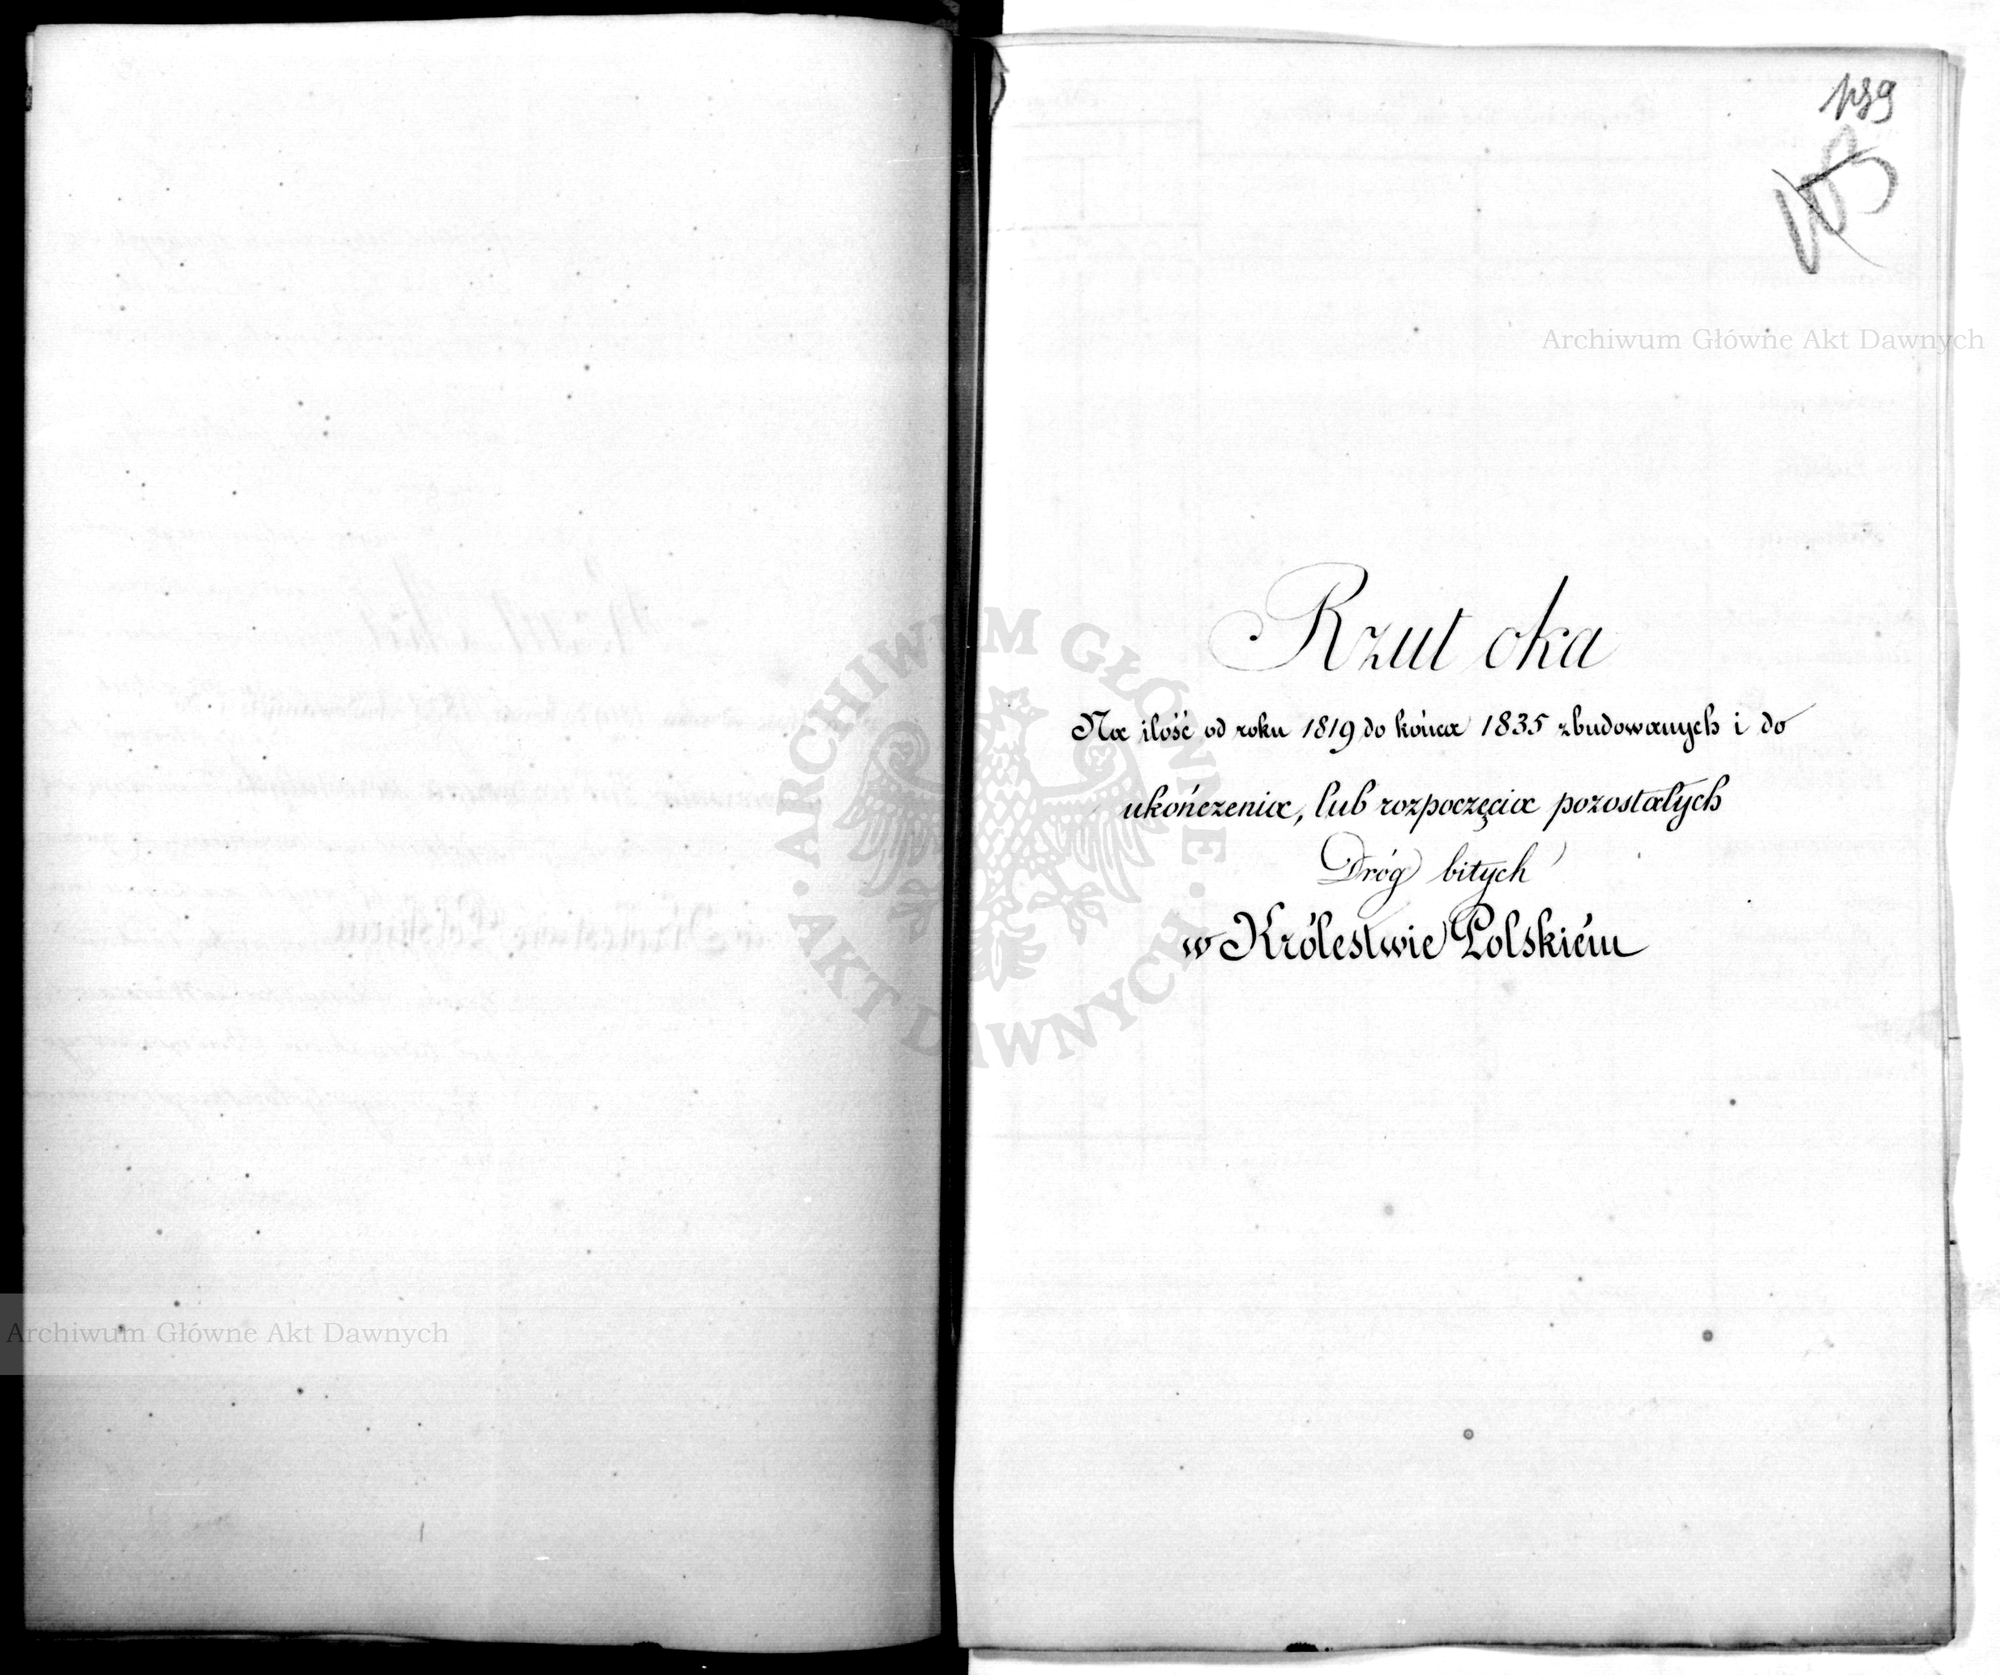 139
103
Archiwum Główne Akt Dawnych
Rzut oka
Na ilość od roku 1819 do końca 1835 zbudowanych i do
ukończenia, lub rozpoczęcia pozostałych
Dróg bitych
w Królestwie Polskiém
ARCHIWUM GŁÓWNE · AKT DAWNYCH ·
Archiwum Główne Akt Dawnych